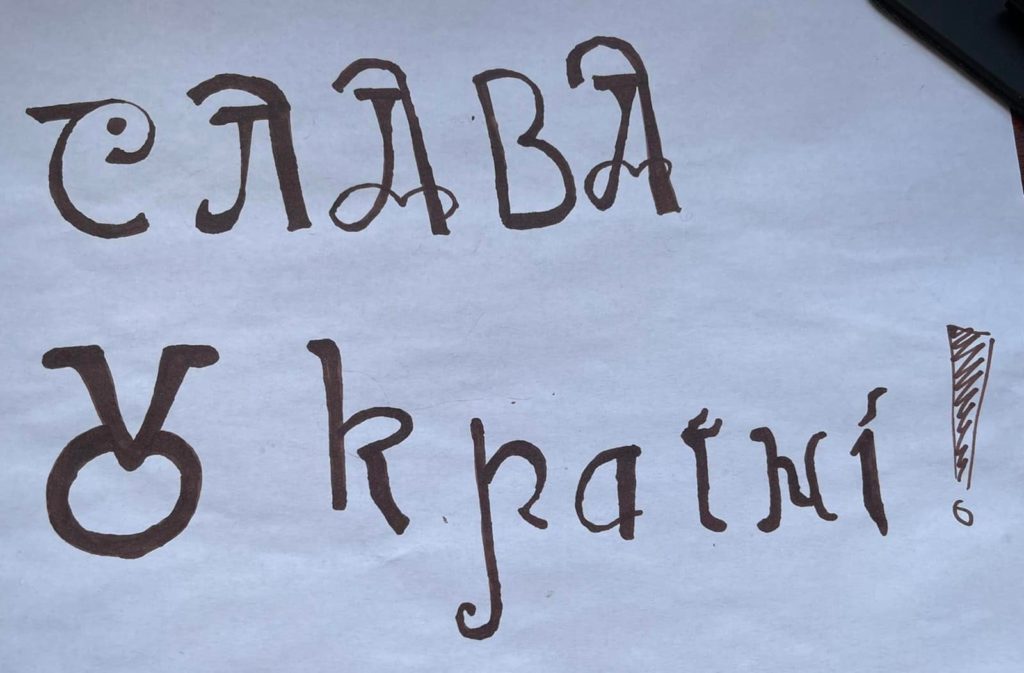 СЛАВА
Ꙋкраїні!